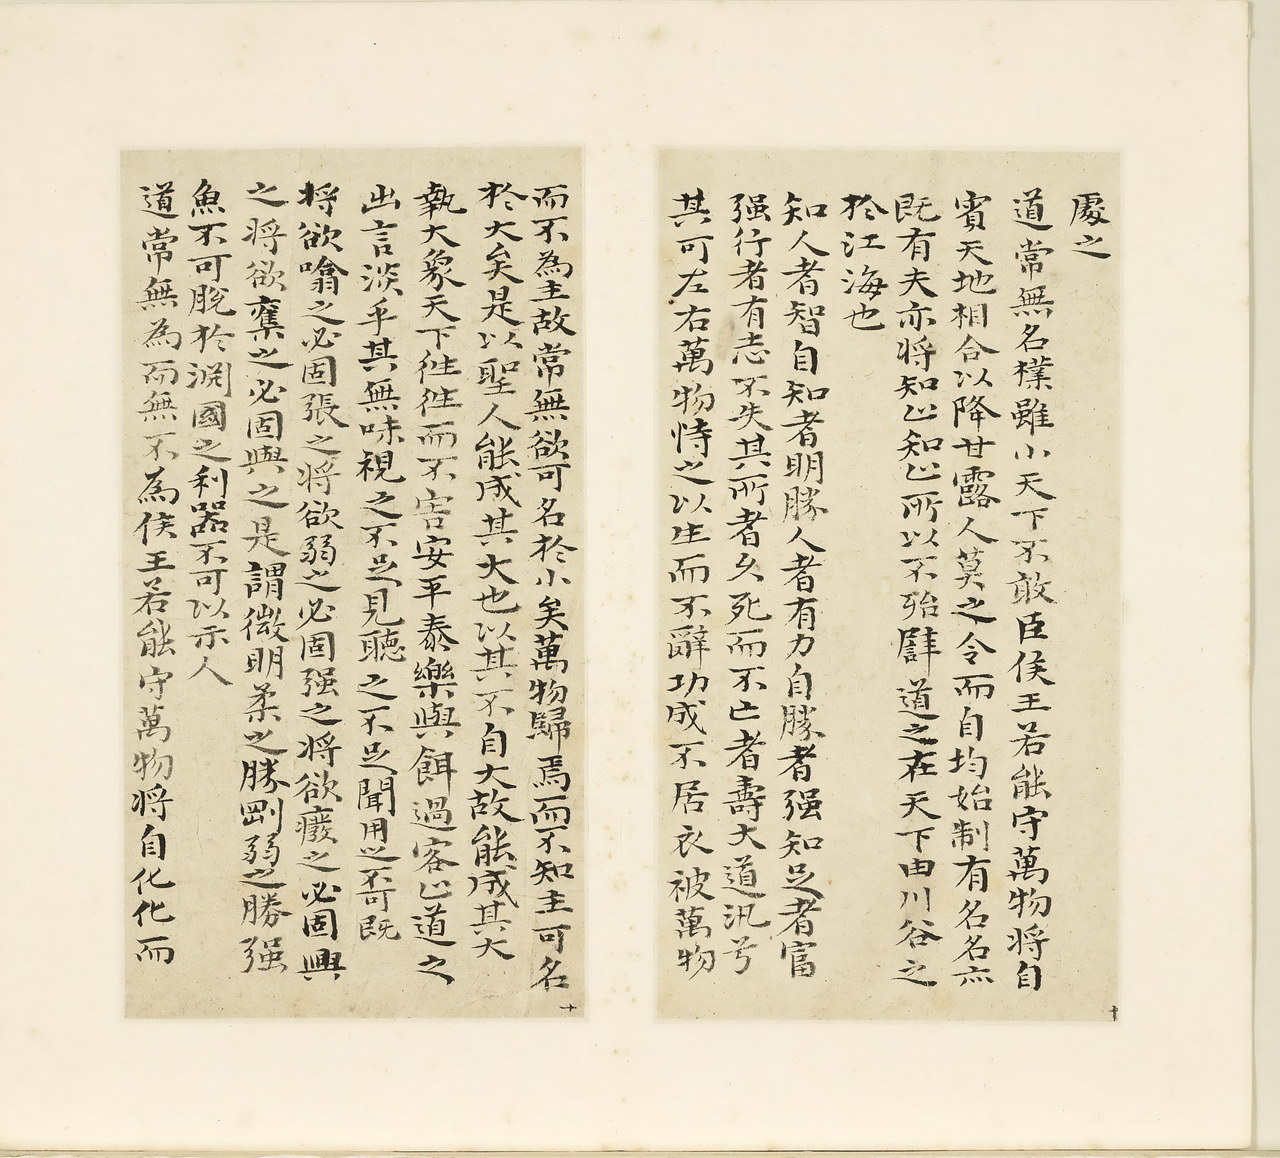 處之
道常無名樸雖小天下不敢臣侯王若能守萬物將自
賓天地相合以降甘露人莫之令而自均始制有名名亦
既有夫亦將知止知止所以不殆譬道之在天下由川谷之
於江海也
知人者智自知者明勝人者有力自勝者强知足者富
强行者有志不失其所者久死而不亡者壽大道汎兮
其可左右萬物恃之以生而不辭功成不居衣被萬物
而不為主故常無欲可名於小矣萬物歸焉而不知主可名
於大矣是以聖人能成其大也以其不自大故能成其大
執大象天下往往而不害安平泰樂與餌過客止道之
出言淡乎其無味視之不足見聽之不足聞用之不可既
將欲噏之必固張之將欲弱之必固强之將欲癈之必固興
之將欲奪之必固與之是謂微明柔之勝剛弱之勝强
魚不可脫於淵國之利器不可以示人
道常無為而無不為侯王若能守萬物將自化化而
十